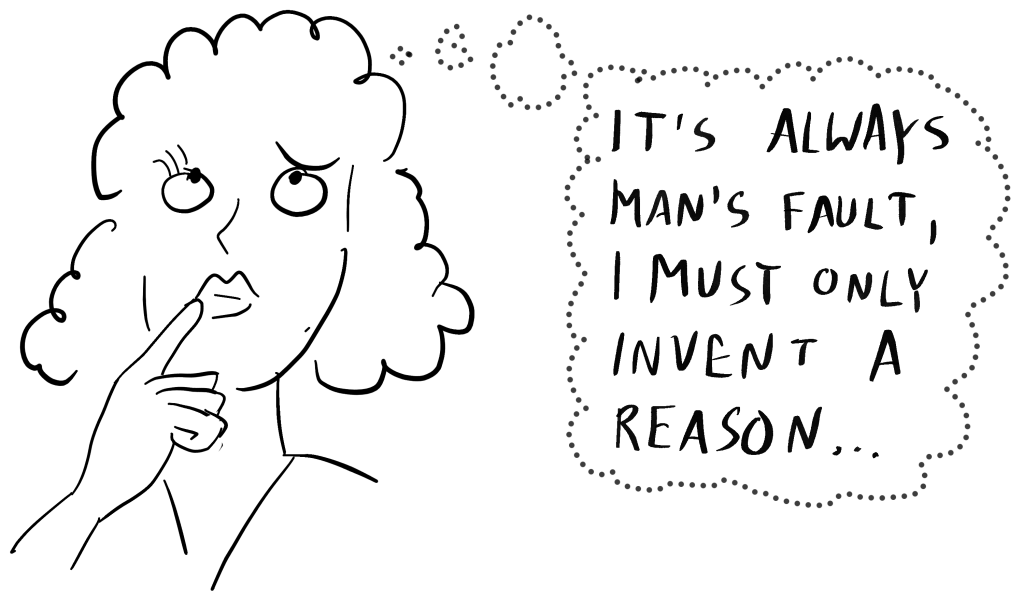 IT'S ALWAYS
MAN'S FAULT,
I MUST ONLY
INVENT A
REASON...